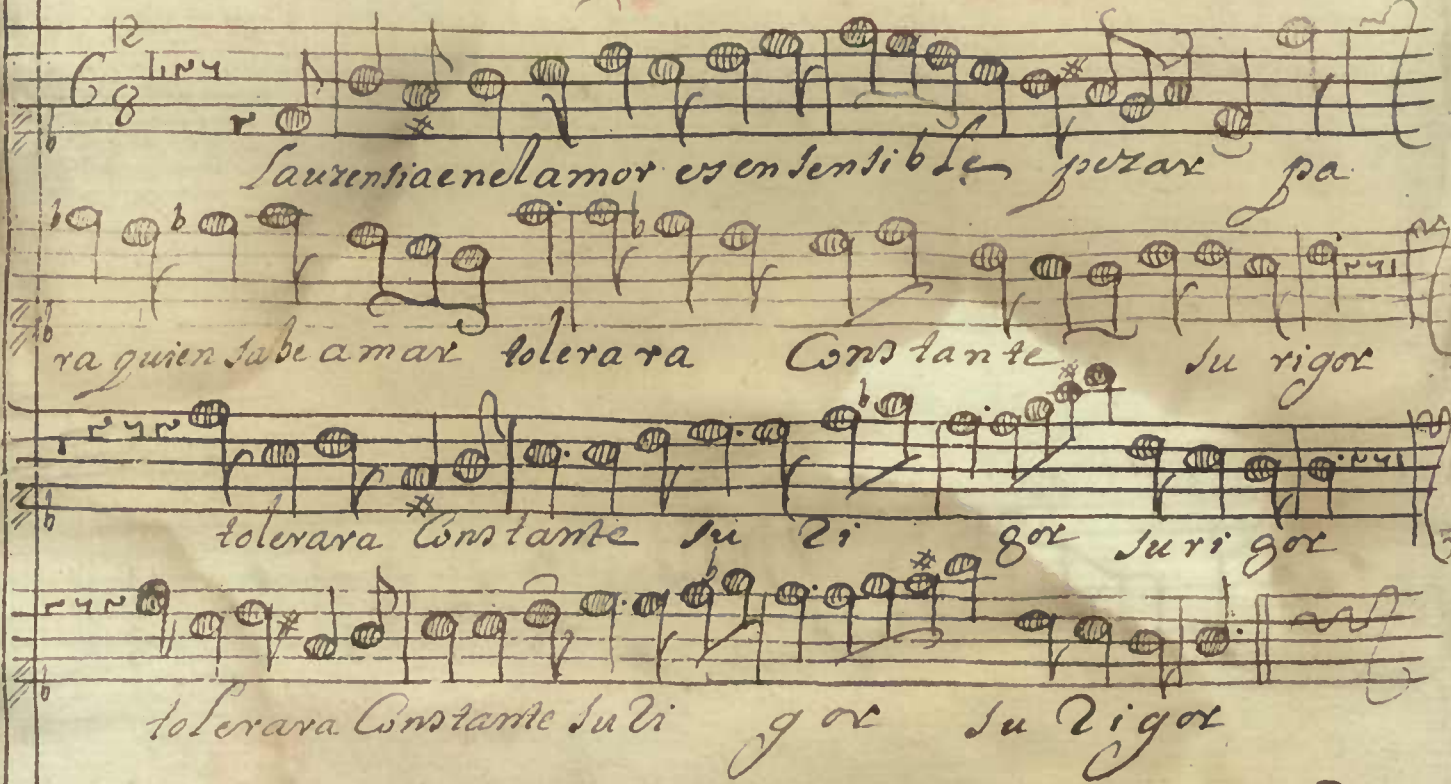 12
8
Laurensia en el amor es en sensible pezar pa
ra quien sabe amar tolerara Constante su rigor
tolerara Constante su Ri gor su ri gor
tolerara Constante su Ri gor su Rigor